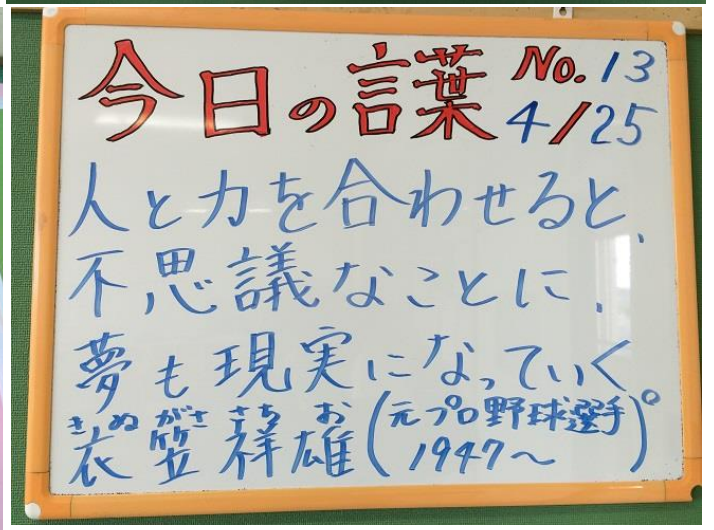 今日の言葉 No. 13
4/25
人と力を合わせると、
不思議なことに、
夢も現実になっていく。
きぬ がさ さち お
衣笠祥雄(元プロ野球選手
1947~)